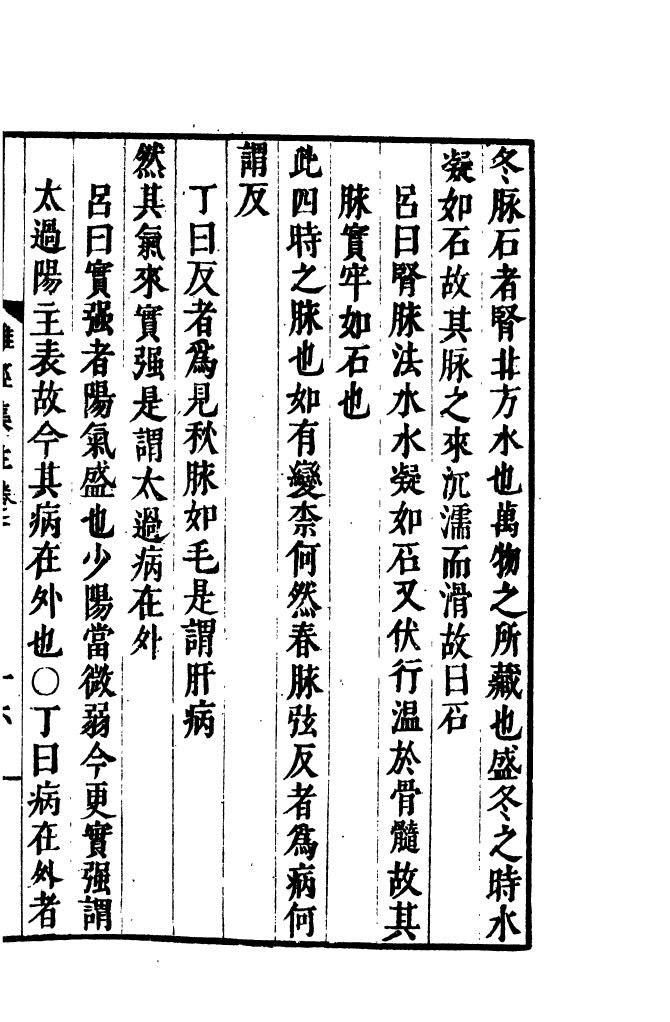 冬脉石者腎北方水也萬物之所藏也盛冬之時水
凝如石故其脉之來沉濡而滑故曰石
呂曰腎脉法水水凝如石又伏行温於骨髓故其
脉實牢如石也
此四時之脉也如有變柰何然春脉弦反者爲病何
謂反
丁曰反者爲見秋脉如毛是謂肝病
然其氣來實强是謂太過病在外
呂曰實强者陽氣盛也少陽當微弱今更實强謂
太過陽主表故令其病在外也○丁曰病在外者
難經集註卷二
十六